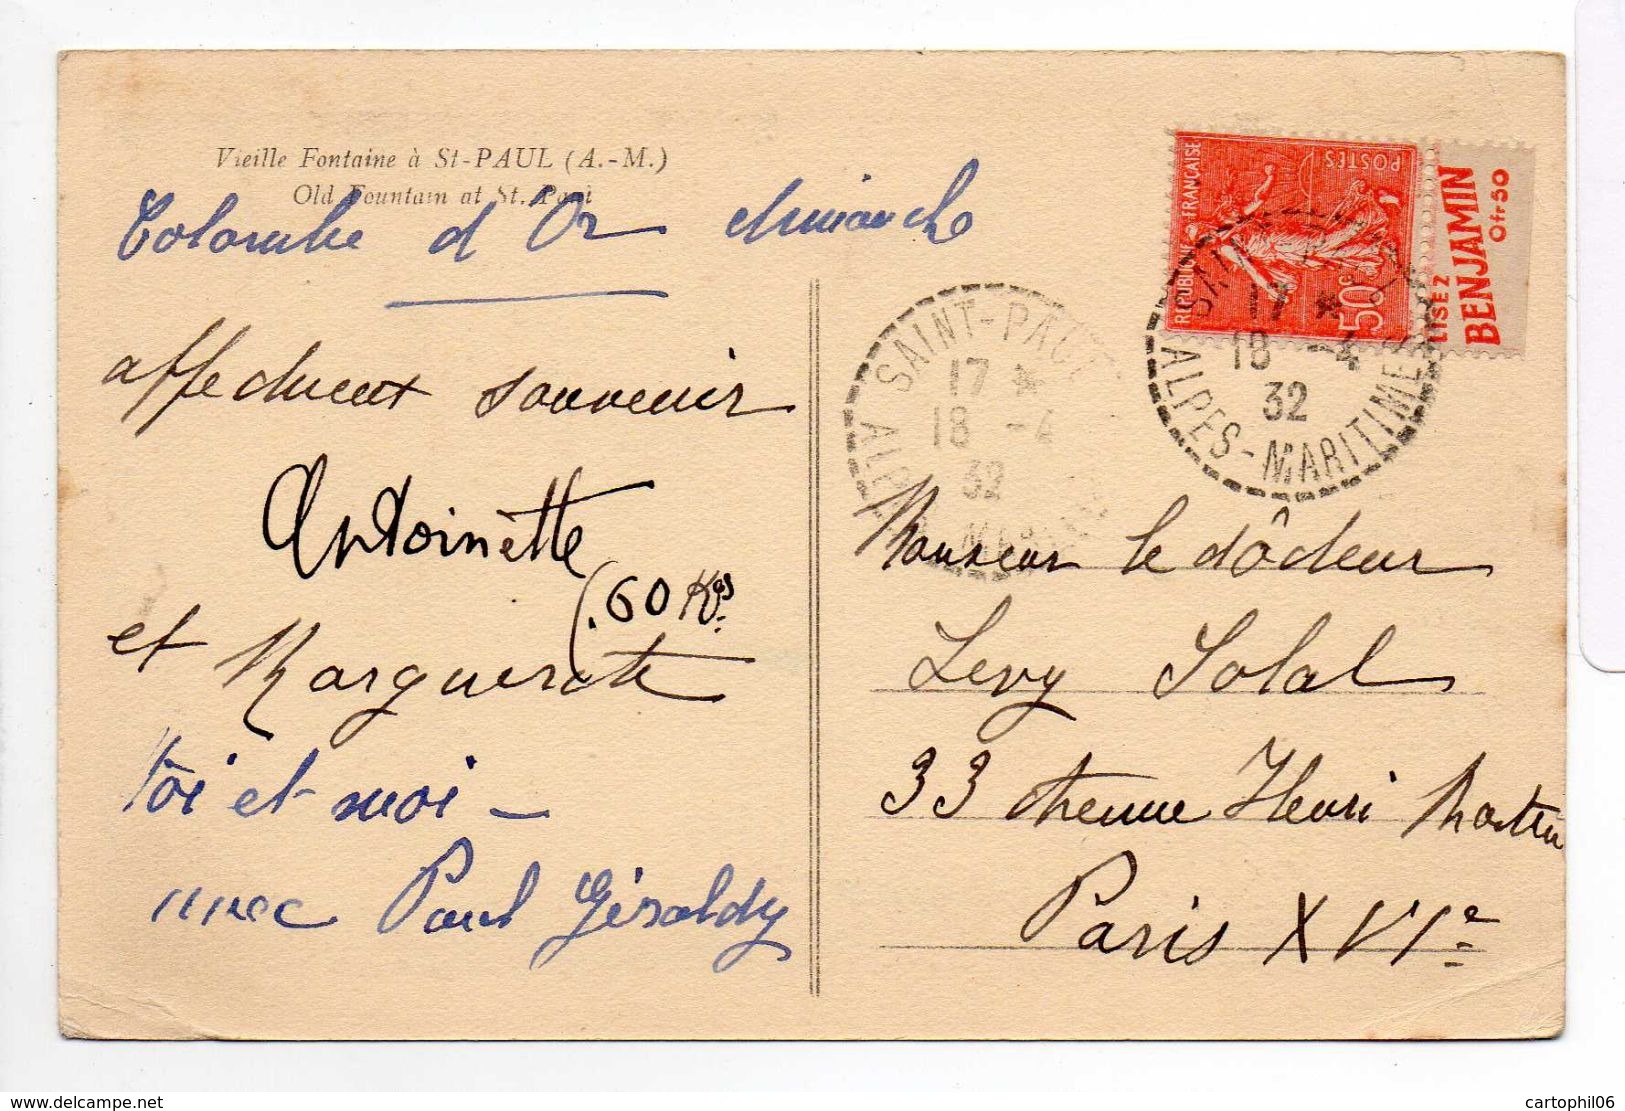 Vieille Fontaine à St-PAUL (A.-M.)
Old Fountain at St. Paul
Colombe d'Or dimanche
affectueux souvenir
Antoinette
(.60 Kgs
et Marguerite
Toi et moi —
avec Paul Géraldy
RÉPUBLIQUE FRANÇAISE
POSTES
50c
LISEZ
BENJAMIN
0fr50
SAINT-PAUL
17 *
18 -4
32
ALPES-MARITIMES
SAINT-PAUL
17 *
18 -4
32
ALPES-MARITIMES
Monsieur le docteur
Levy Solal
33 Avenue Henri Martin
Paris XVIe
delcampe.net
cartophil06